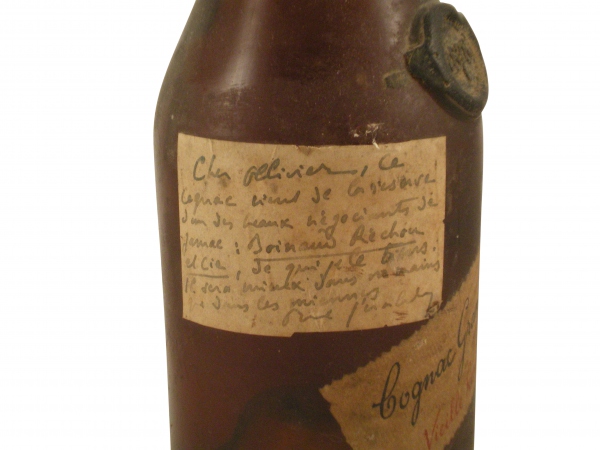 Cher Ollivier, Ce
Cognac vient de la réserve
d'un des beaux négociants de
Jarnac : Boinaud Richon
et Cie, de qui je le tiens.
Il sera mieux dans vos mains
que dans les miennes
Cognac
Vieille